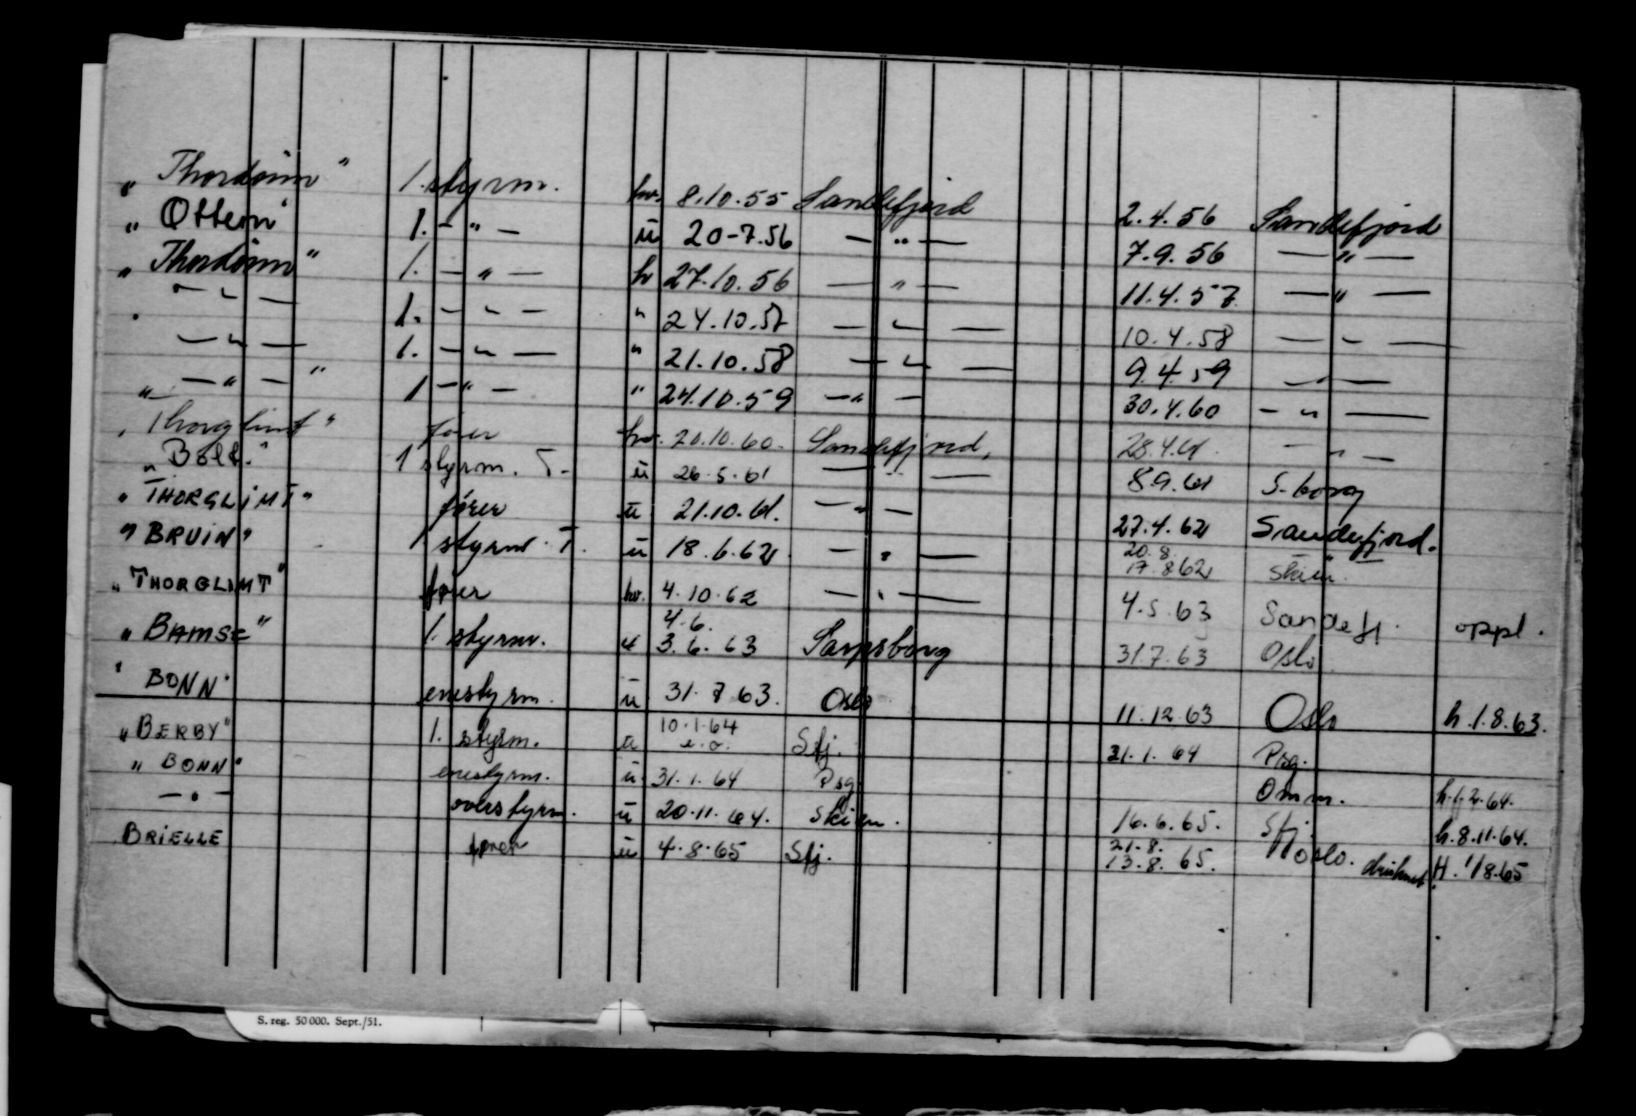 " Thordönn " 1. styrm. hv. 8.10.55 Sandefjord 2.4.56 Sandefjord
" Ottern " 1. - " - ü 20-7.56 - " - 7.9.56 - " -
" Thordönn " 1. - " - hv 27.10.56 - " - 11.4.57 - " -
- " - 1. - " - " 24.10.57 - " - 10.4.58 - " -
- " - 1. - " - " 21.10.58 - " - 9.4.59 - " -
" - " - " 1 - " - " 24.10.59 - " - 30.4.60 - " -
" Thorglimt " förer hv. 20.10.60. Sandefjord, 28.4.61. - " -
" Boll. " 1 styrm. T. ü 26.5.61 - " - 8.9.61 S.borg
" THORGLIMT " förer ü 21.10.61. - " - 27.4.62 Sandefjord.
" BRUIN " 1 styrm. T. ü 18.6.62 - " - 20.8. 17.8 62 Skien.
" THORGLIMT " förer hv. 4.10.62 - " - 4.5.63 Sandefj. oppl.
" BAMSE " 1. styrm. u 4.6. 3.6.63 Sarpsborg 31 7.63 Oslo
" BONN " enestyrm. ü 31.7.63. Oslo 11.12.63 Oslo h.1.8.63.
" BERBY " 1. styrm. a 10.1.64 e.o. Sfj. 31.1.64 Psg.
" BONN " enestyrm. ü 31.1.64 Psg Omm. h.1.2.64.
- " - overstyrm. ü 20.11.64. Skien. 16.6.65. Sfj. h.8.11.64.
BRIELLE förer ü 4.8.65 Sfj. 21.8. 13.8.65. Oslo. H. 1/8.65
S. reg. 50 000. Sept./51.